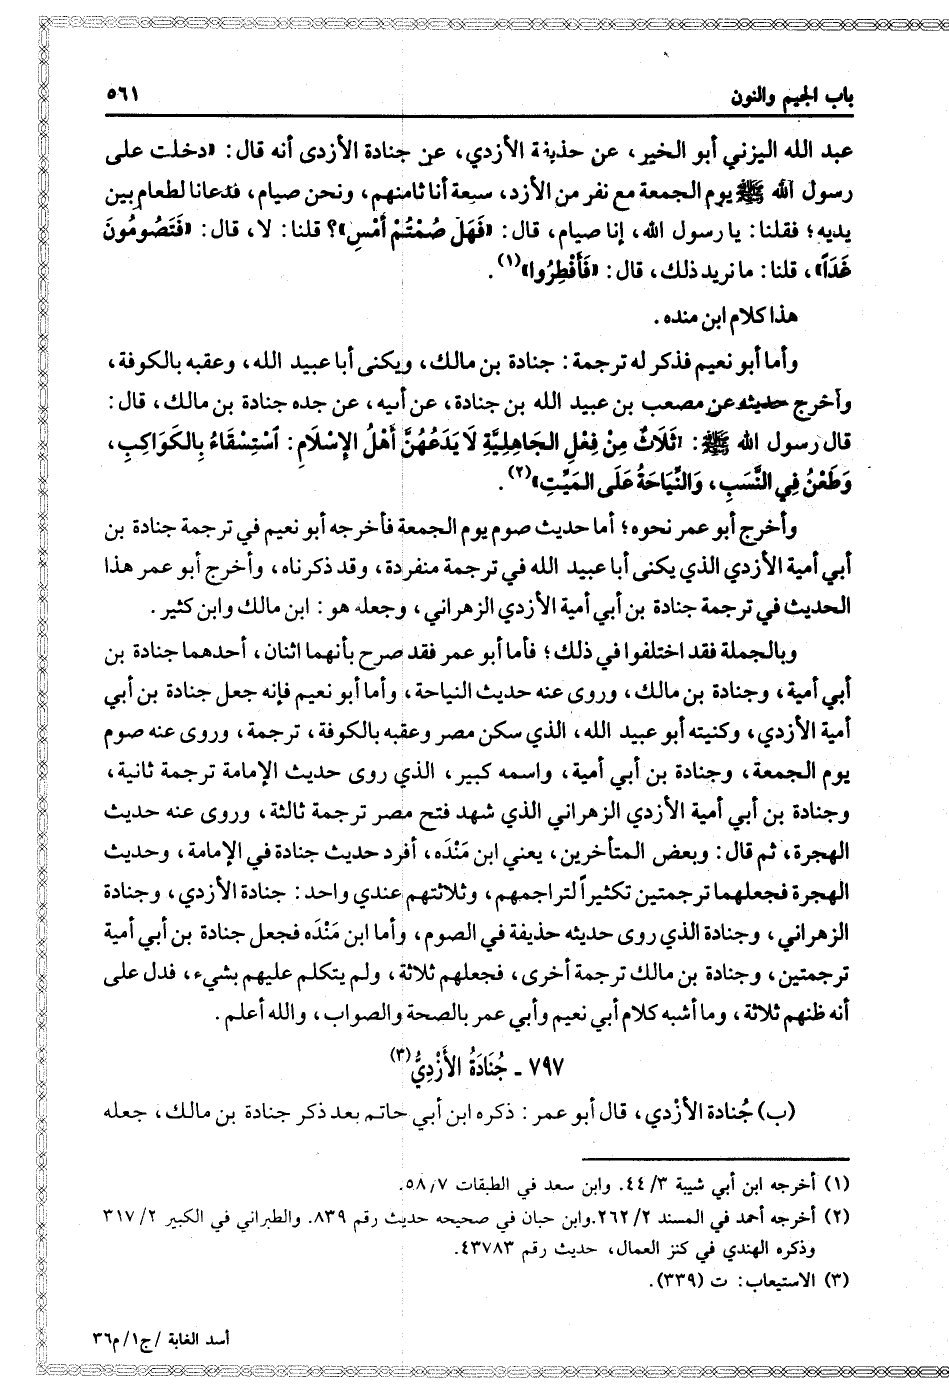 باب الجيم والنون
٥٦١
عبد الله اليزني أبو الخير، عن حذيفة الأزدي، عن جنادة الأزدى أنه قال: «دخلت على
رسول الله ﷺ يوم الجمعة مع نفر من الأزد، سبعة أنا ثامنهم، ونحن صيام، فدعانا لطعام بين
يديه؛ فقلنا: يا رسول الله، إنا صيام، قال: «فَهَلْ صُمْتُمْ أَمْسِ»؟ قلنا: لا، قال: «فَتَصُومُونَ
غَدَاً»، قلنا: ما نريد ذلك، قال: «فَأَفْطِرُوا»(١).
هذا كلام ابن منده.
وأما أبو نعيم فذكر له ترجمة: جنادة بن مالك، ويكنى أبا عبيد الله، وعقبه بالكوفة،
وأخرج حديثه عن مصعب بن عبيد الله بن جنادة، عن أبيه، عن جده جنادة بن مالك، قال:
قال رسول الله ﷺ: «ثَلَاثٌ مِنْ فِعْلِ الجَاهِلِيَّةِ لَا يَدَعُهُنَّ أَهْلُ الإِسْلَامِ: اَسْتِسْقَاءُ بِالكَوَاكِبِ،
وَطَعْنٌ فِي النَّسَبِ، وَالنِّيَاحَةُ عَلَى المَيِّتِ»(٢).
وأخرج أبو عمر نحوه؛ أما حديث صوم يوم الجمعة فأخرجه أبو نعيم في ترجمة جنادة بن
أبي أمية الأزدي الذي يكنى أبا عبيد الله في ترجمة منفردة، وقد ذكرناه، وأخرج أبو عمر هذا
الحديث في ترجمة جنادة بن أبي أمية الأزدي الزهراني، وجعله هو: ابن مالك وابن كثير.
وبالجملة فقد اختلفوا في ذلك؛ فأما أبو عمر فقد صرح بأنهما اثنان، أحدهما جنادة بن
أبي أمية، وجنادة بن مالك، وروى عنه حديث النياحة، وأما أبو نعيم فإنه جعل جنادة بن أبي
أمية الأزدي، وكنيته أبو عبيد الله، الذي سكن مصر وعقبه بالكوفة، ترجمة، وروى عنه صوم
يوم الجمعة، وجنادة بن أبي أمية، واسمه كبير، الذي روى حديث الإمامة ترجمة ثانية،
وجنادة بن أبي أمية الأزدي الزهراني الذي شهد فتح مصر ترجمة ثالثة، وروى عنه حديث
الهجرة، ثم قال: وبعض المتأخرين، يعني ابن مَنْدَه، أفرد حديث جنادة في الإمامة، وحديث
الهجرة فجعلهما ترجمتين تكثيراً لتراجمهم، وثلاثتهم عندي واحد: جنادة الأزدي، وجنادة
الزهراني، وجنادة الذي روى حديثه حذيفة في الصوم، وأما ابن مَنْدَه فجعل جنادة بن أبي أمية
ترجمتين، وجنادة بن مالك ترجمة أخرى، فجعلهم ثلاثة، ولم يتكلم عليهم بشيء، فدل على
أنه ظنهم ثلاثة، وما أشبه كلام أبي نعيم وأبي عمر بالصحة والصواب، والله أعلم.
٧٩٧ - جُنَادَةُ الأَزْدِيُّ(٣)
(ب) جُنادة الأزْدي، قال أبو عمر: ذكره ابن أبي حاتم بعد ذكر جنادة بن مالك، جعله
(١) أخرجه ابن أبي شيبة ٣/ ٤٤. وابن سعد في الطبقات ٥٨/٧.
(٢) أخرجه أحمد في المسند ٢/ ٢٦٢.وابن حبان في صحيحه حديث رقم ٨٣٩. والطبراني في الكبير ٢/ ٣١٧
وذكره الهندي في كنز العمال، حديث رقم ٤٣٧٨٣.
(٣) الاستيعاب: ت (٣٣٩).
أسد الغابة /ج١/م٣٦